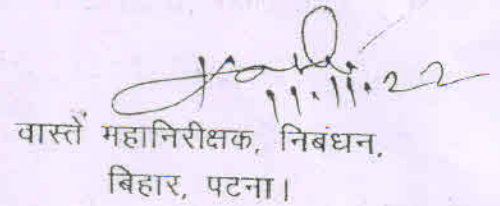 11.11.22
वास्तें महानिरीक्षक, निबंधन,
बिहार, पटना।